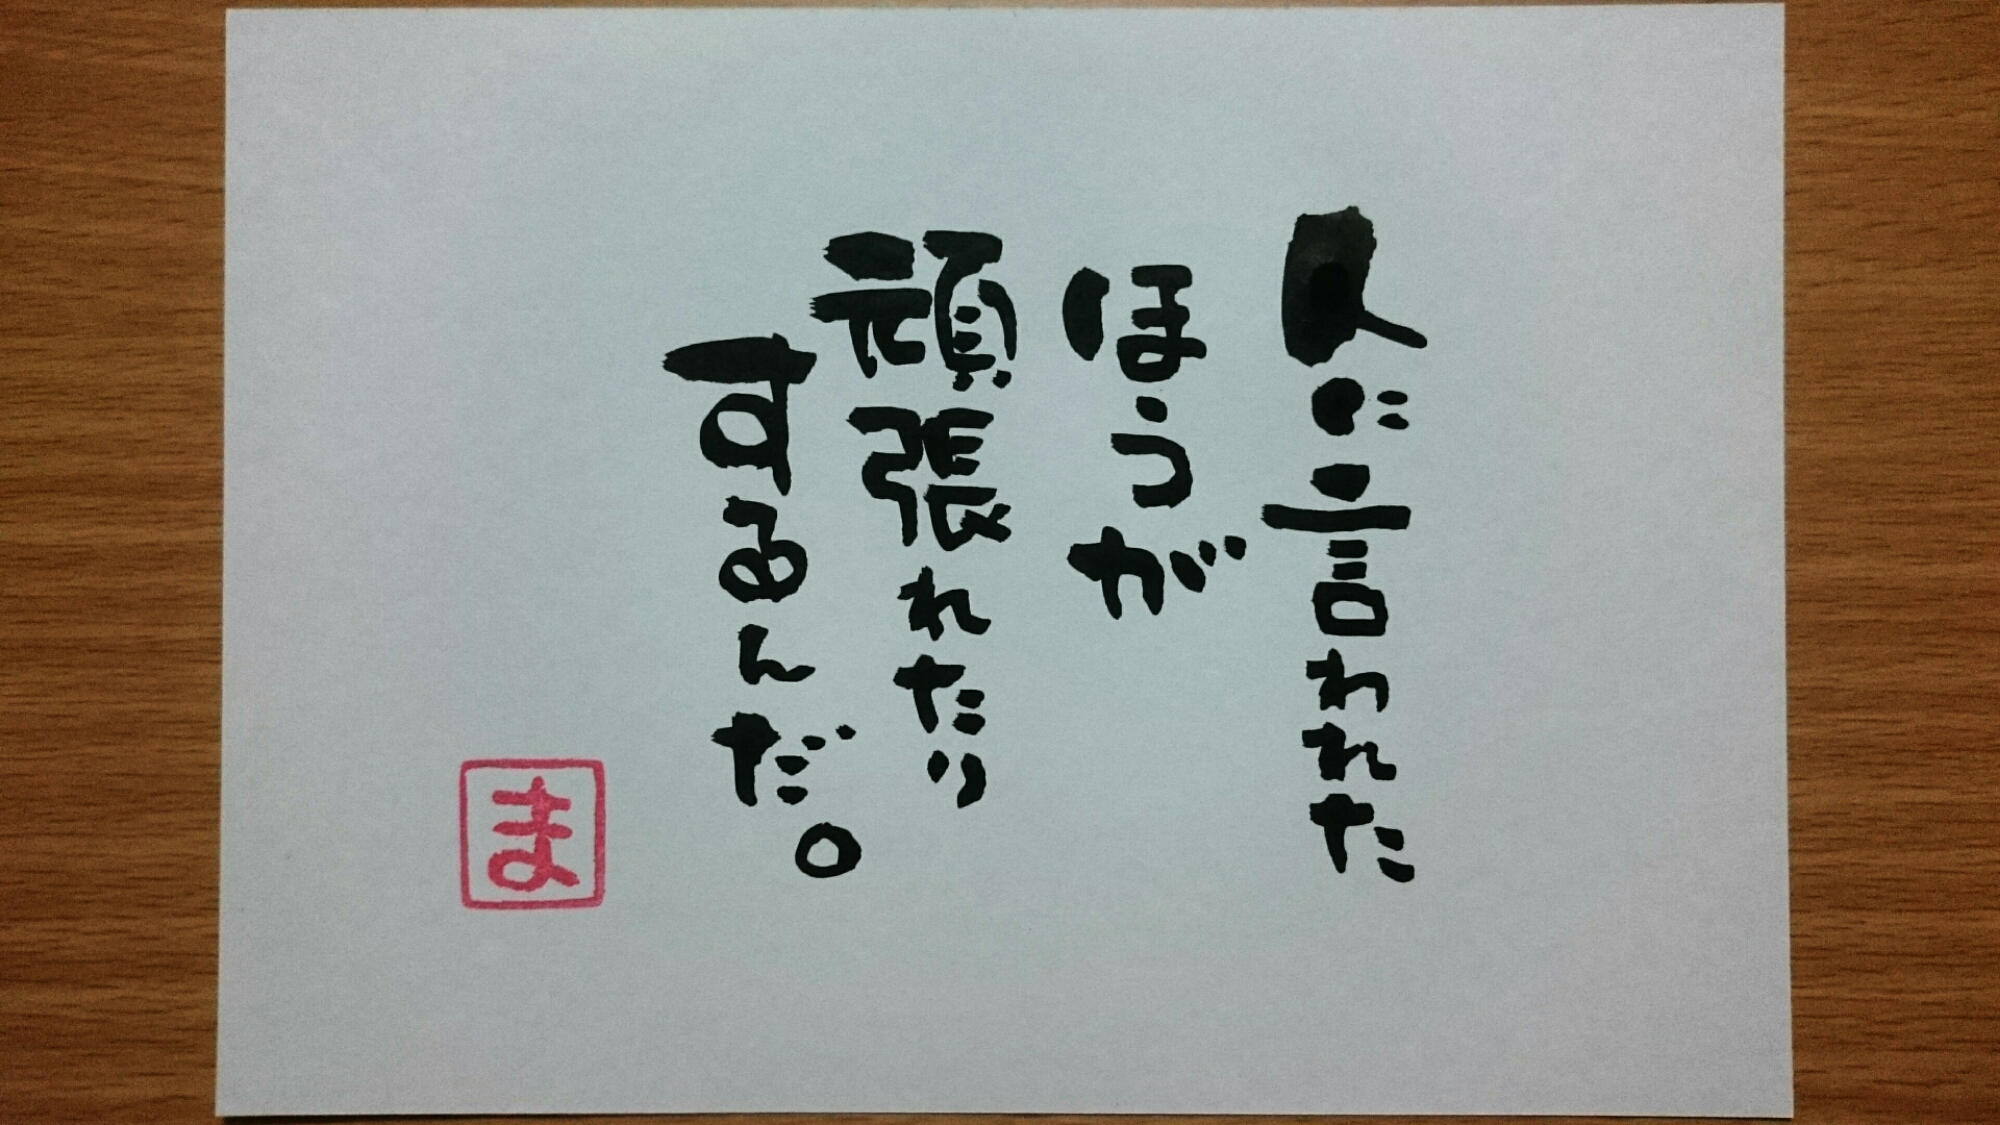 人に言われた
ほうが
頑張れたり
するんだ。
ま